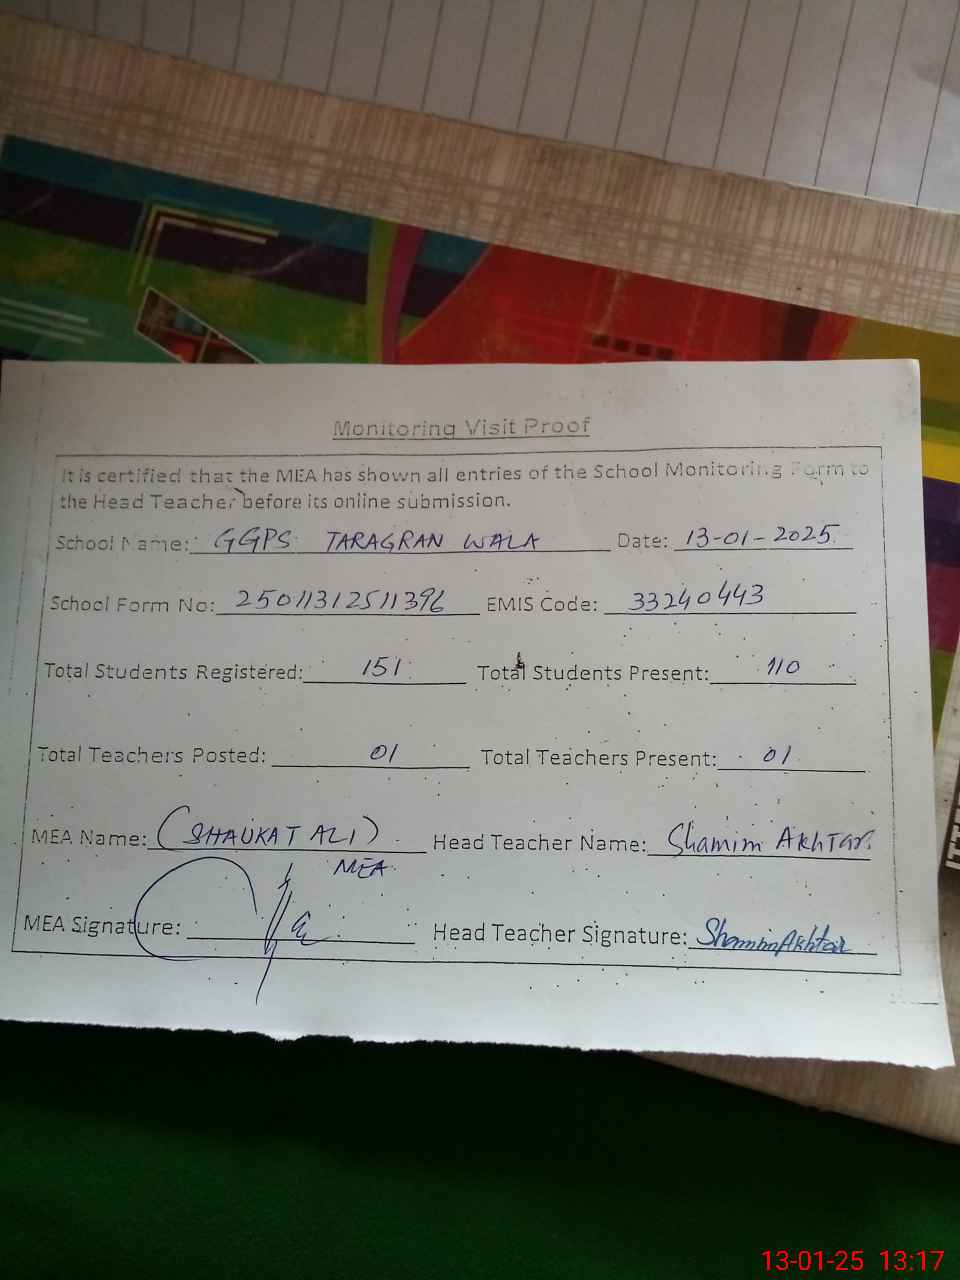 Monitoring Visit Proof
It is certified that the MEA has shown all entries of the School Monitoring Form to
the Head Teacher before its online submission.
School Name: GGPS TARAGRAN WALA Date: 13-01-2025
School Form No: 25011312511396 EMIS Code: 33240443
Total Students Registered: 151 Total Students Present: 110
Total Teachers Posted: 01 Total Teachers Present: 01
MEA Name: (SHAUKAT ALI) Head Teacher Name: Shamim Akhtar
MEA
MEA Signature: Head Teacher Signature: Shamim Akhtar
13-01-25 13:17